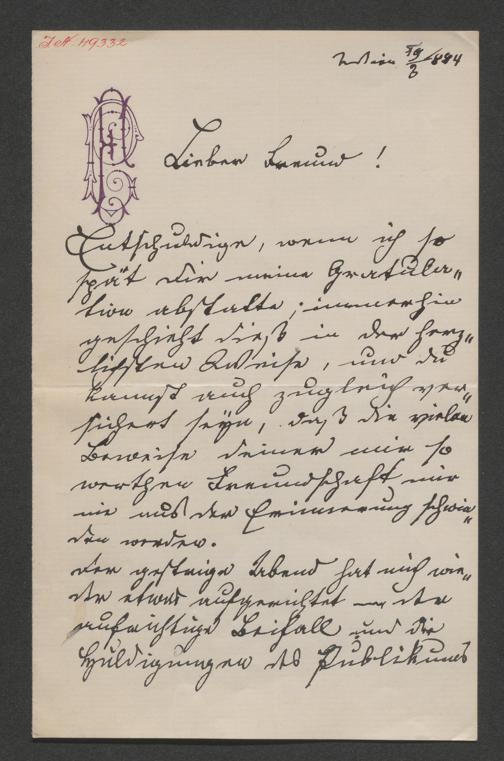 I.N. 49332
Wien 19/3 884
Lieber Freund!
Entschuldige, wenn ich so
spät dir meine Gratula„
tion abstatte; immerhin
geschieht dieß in der herz„
lichsten Weise, und du
kannst auch zugleich ver„
sichert seyn, daß die vielen
Beweise deiner mir so
werthen Freundschaft mir
nie aus der Erinnerung schwin„
den werden.
Der gestrige Abend hat mich wie„
der etwas aufgerichtet der
aufrichtige Beifall und die
Huldigungen des Publikums